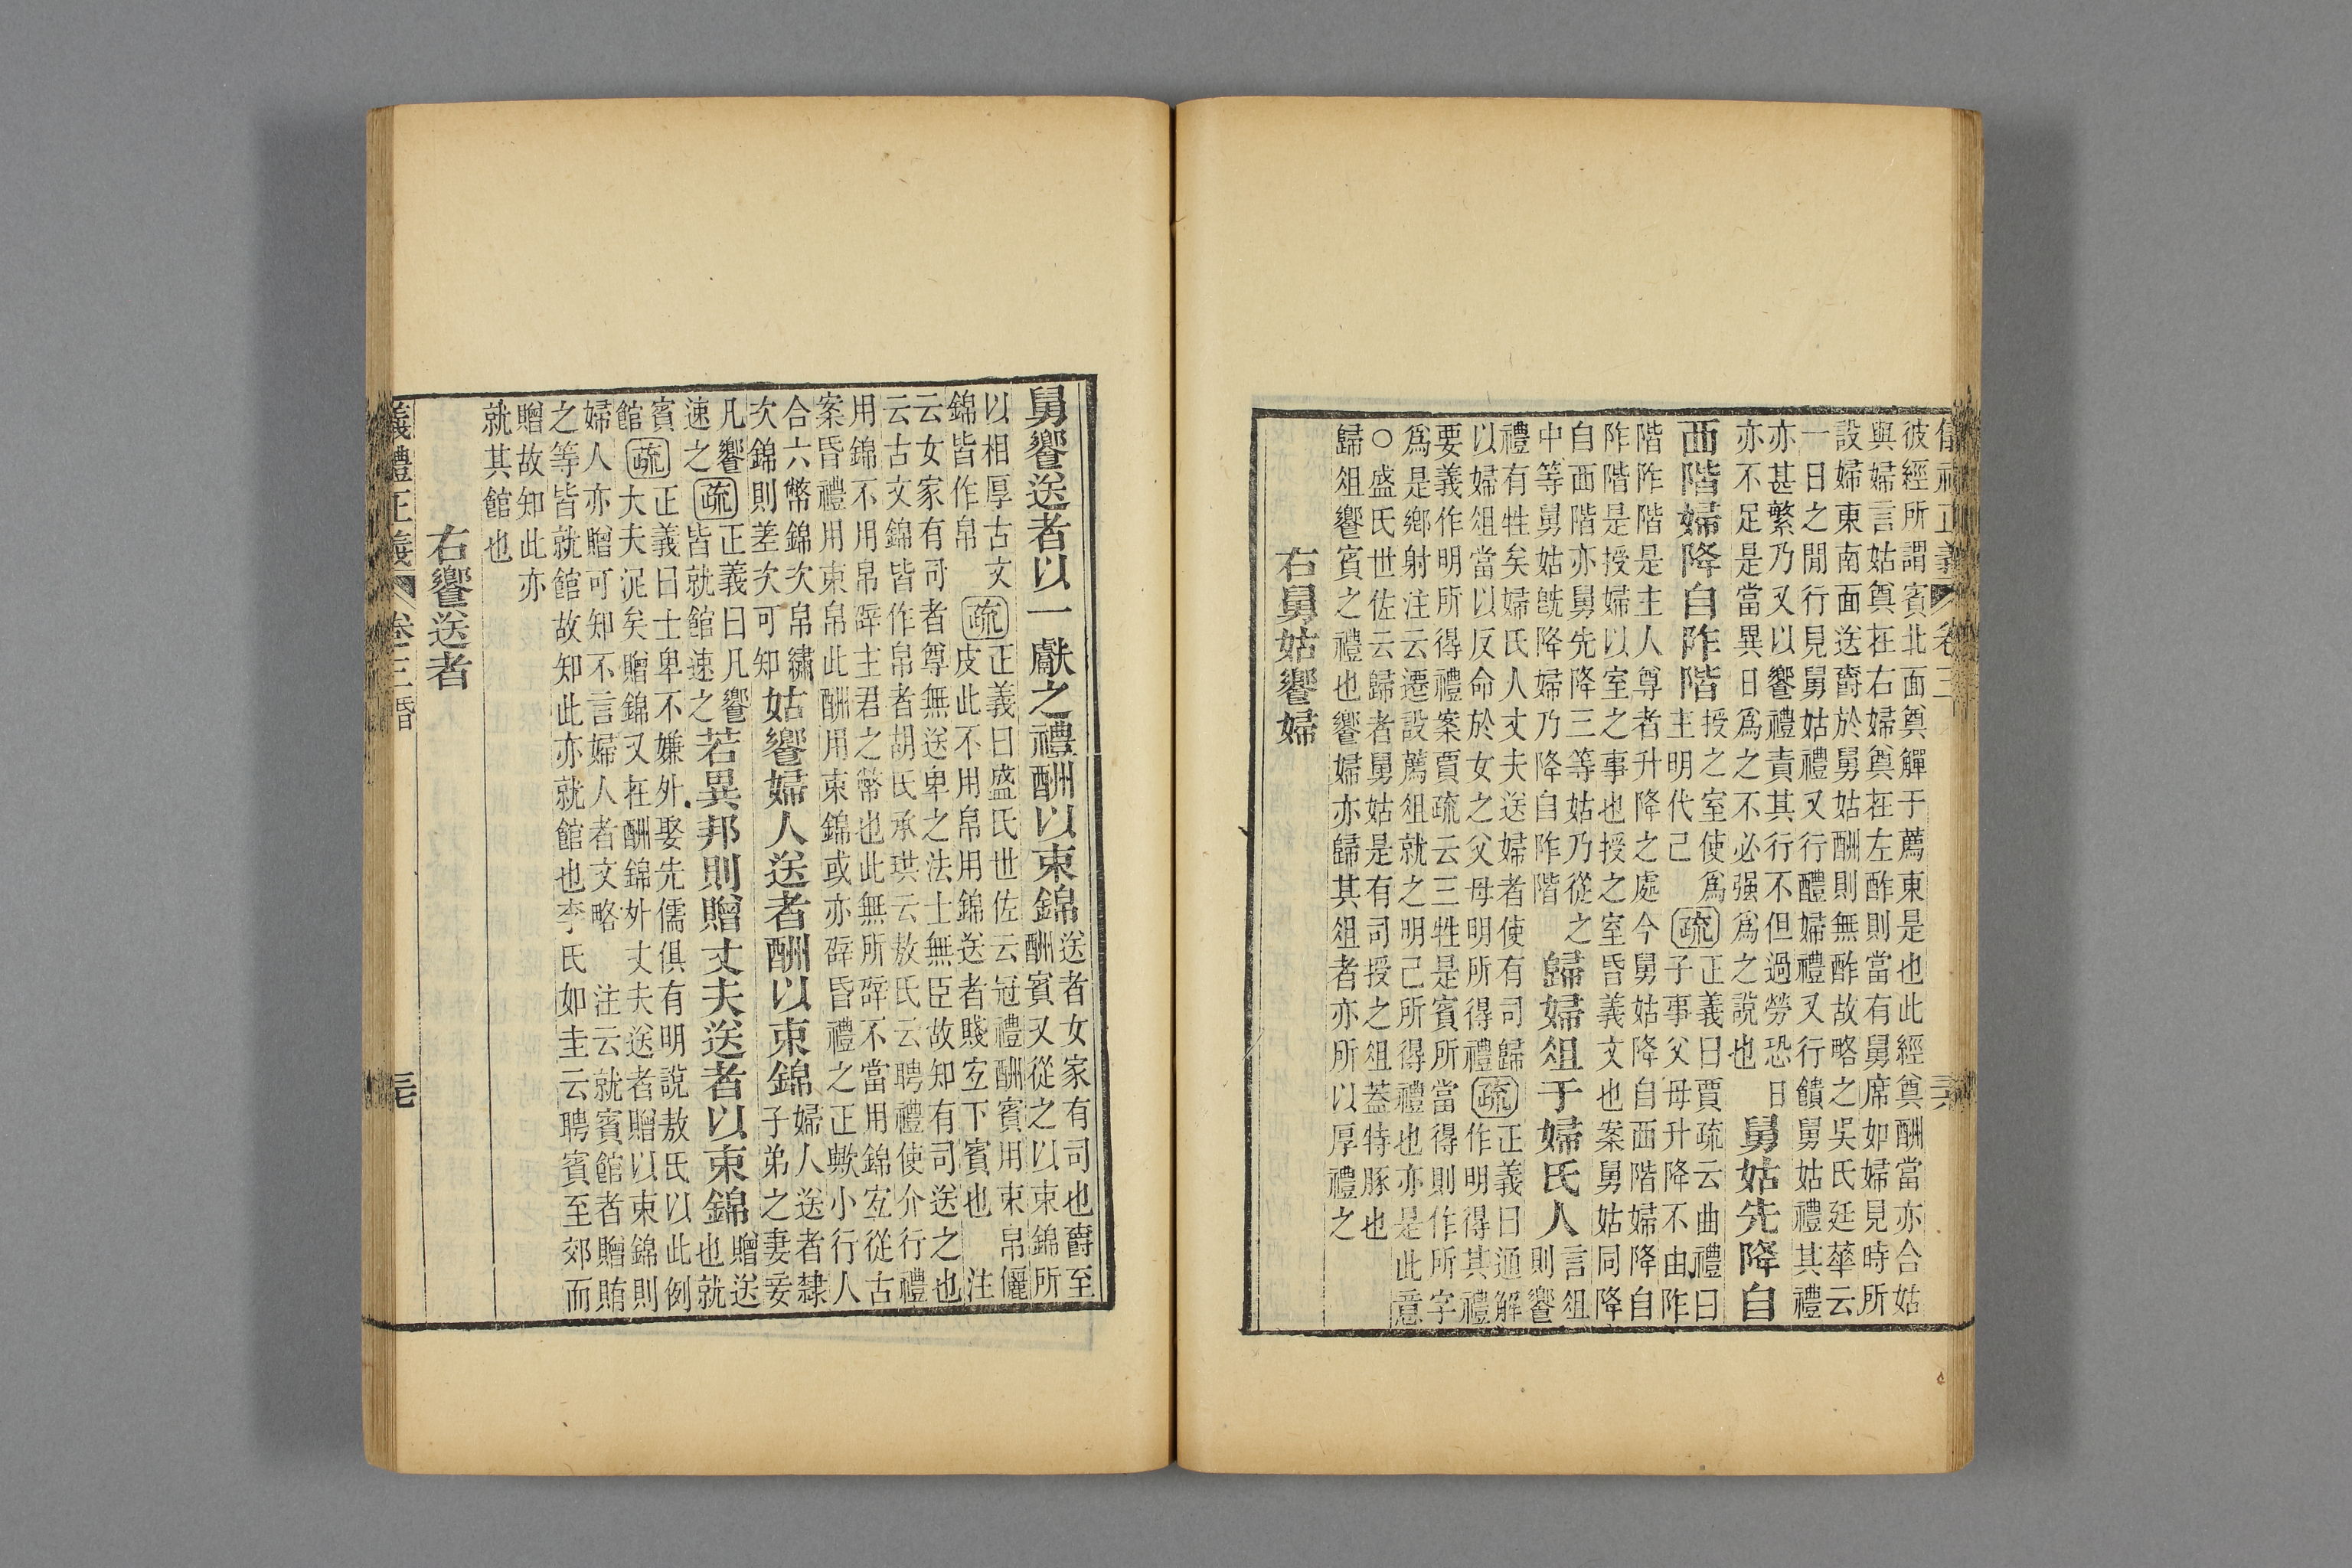 儀禮正義 卷三 三六
彼經所謂賓北面奠觶于薦東是也此經奠酬當亦合姑
與婦言姑奠在右婦奠在左酢則當有舅席如婦見時所
設婦東南面送爵於舅姑酬則無酢故略之吳氏廷華云
一日之閒行見舅姑禮又行醴婦禮又行饋舅姑禮其禮
亦甚繁乃又以饗禮責其行不但過勞恐日
亦不足是當異日爲之不必强爲之說也
舅姑先降自
西階婦降自阼階
授之室使爲
主明代己
疏
正義曰賈疏云曲禮曰
子事父母升降不由阼
階阼階是主人尊者升降之處今舅姑降自西階婦降自
阼階是授婦以室之事也授之室昏義文也案舅姑同降
自西階亦舅先降三等姑乃從之
中等舅姑旣降婦乃降自阼階
歸婦俎于婦氏人
言俎
則饗
禮有牲矣婦氏人丈夫送婦者使有司歸
以婦俎當以反命於女之父母明所得禮
疏
正義曰通解
作明得其禮
要義作明所得禮案賈疏云三牲是賓所當得則作所字
爲是鄉射注云遷設薦俎就之明己所得禮也亦是此意
○盛氏世佐云歸者舅姑是有司授之俎蓋特豚也
歸俎饗賓之禮也饗婦亦歸其俎者亦所以厚禮之
右舅姑饗婦
舅饗送者以一獻之禮酬以束錦
送者女家有司也爵至
酬賓又從之以束錦所
以相厚古文
錦皆作帛
疏
正義曰盛氏世佐云冠禮酬賓用束帛儷
皮此不用帛用錦送者賤宜下賓也　注
云女家有司者尊無送卑之法士無臣故知有司送之也
云古文錦皆作帛者胡氏承珙云敖氏云聘禮使介行禮
用錦不用帛辟主君之幣也此無所辟不當用錦宜從古
案昏禮用束帛此酬用束錦或亦辟昏禮之正歟小行人
合六幣錦次帛繡
次錦則差次可知
姑饗婦人送者酬以束錦
婦人送者隸
子弟之妻妾
凡饗
速之
疏
正義曰凡饗
皆就館速之
若異邦則贈丈夫送者以束錦
贈送
也就
賓
館
疏
正義曰士卑不嫌外娶先儒俱有明說敖氏以此例
大夫泥矣贈錦又在酬錦外丈夫送者贈以束錦則
婦人亦贈可知不言婦人者文略　注云就賓館者贈賄
之等皆就館故知此亦就館也李氏如圭云聘賓至郊而
贈故知此亦
就其館也
右饗送者
儀禮正義 卷三昏 三七